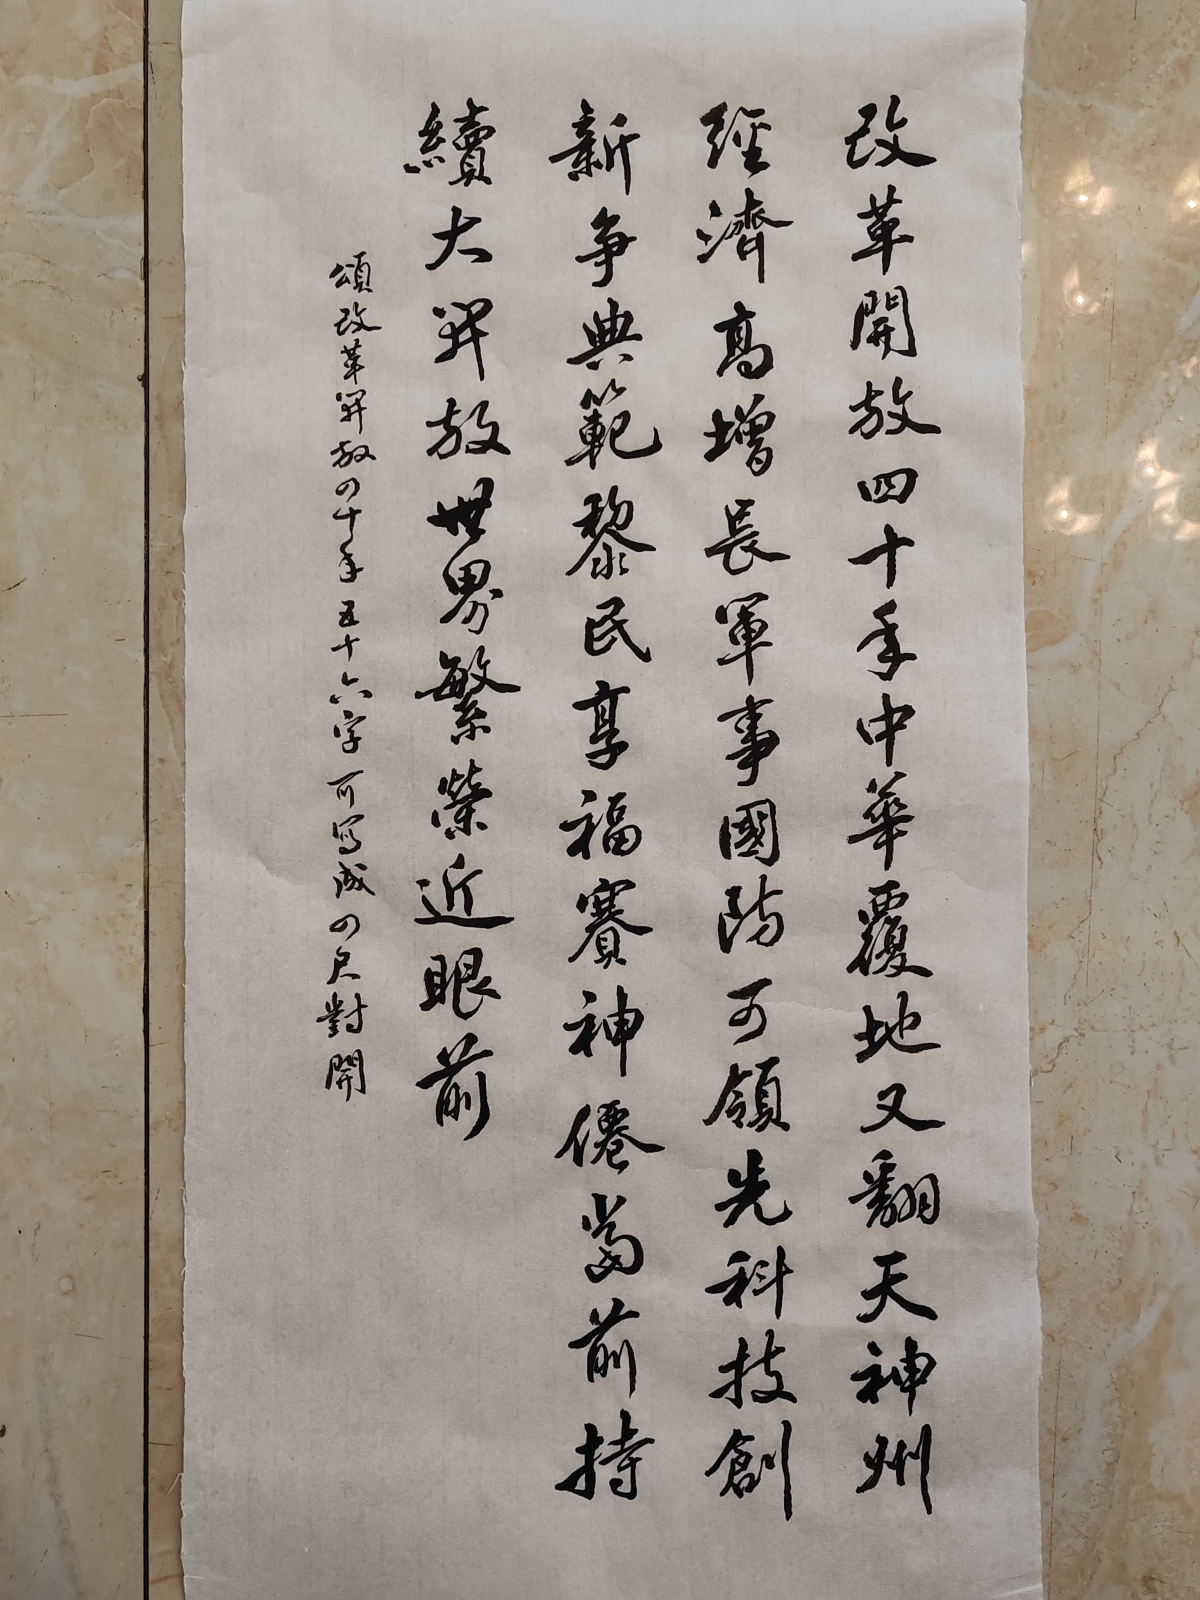 改革開放四十年中華覆地又翻天神州
經濟高增長軍事國防可領先科技創
新争典範黎民享福賽神僊當前持
續大開放世界繁榮近眼前
頌改革開放四十年五十六字可寫成四尺對開